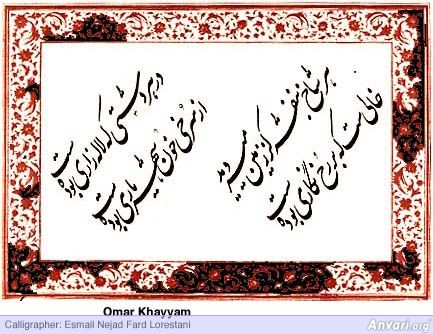 در هر دشتی که لاله زاری بوده ست
از سرخی خون شهریاری بوده ست
هر شاخ بنفشه کز زمین میروید
خالی ست که بر رخ نگاری بوده ست
Omar Khayyam
Calligrapher: Esmail Nejad Fard Lorestani
Anvari.org